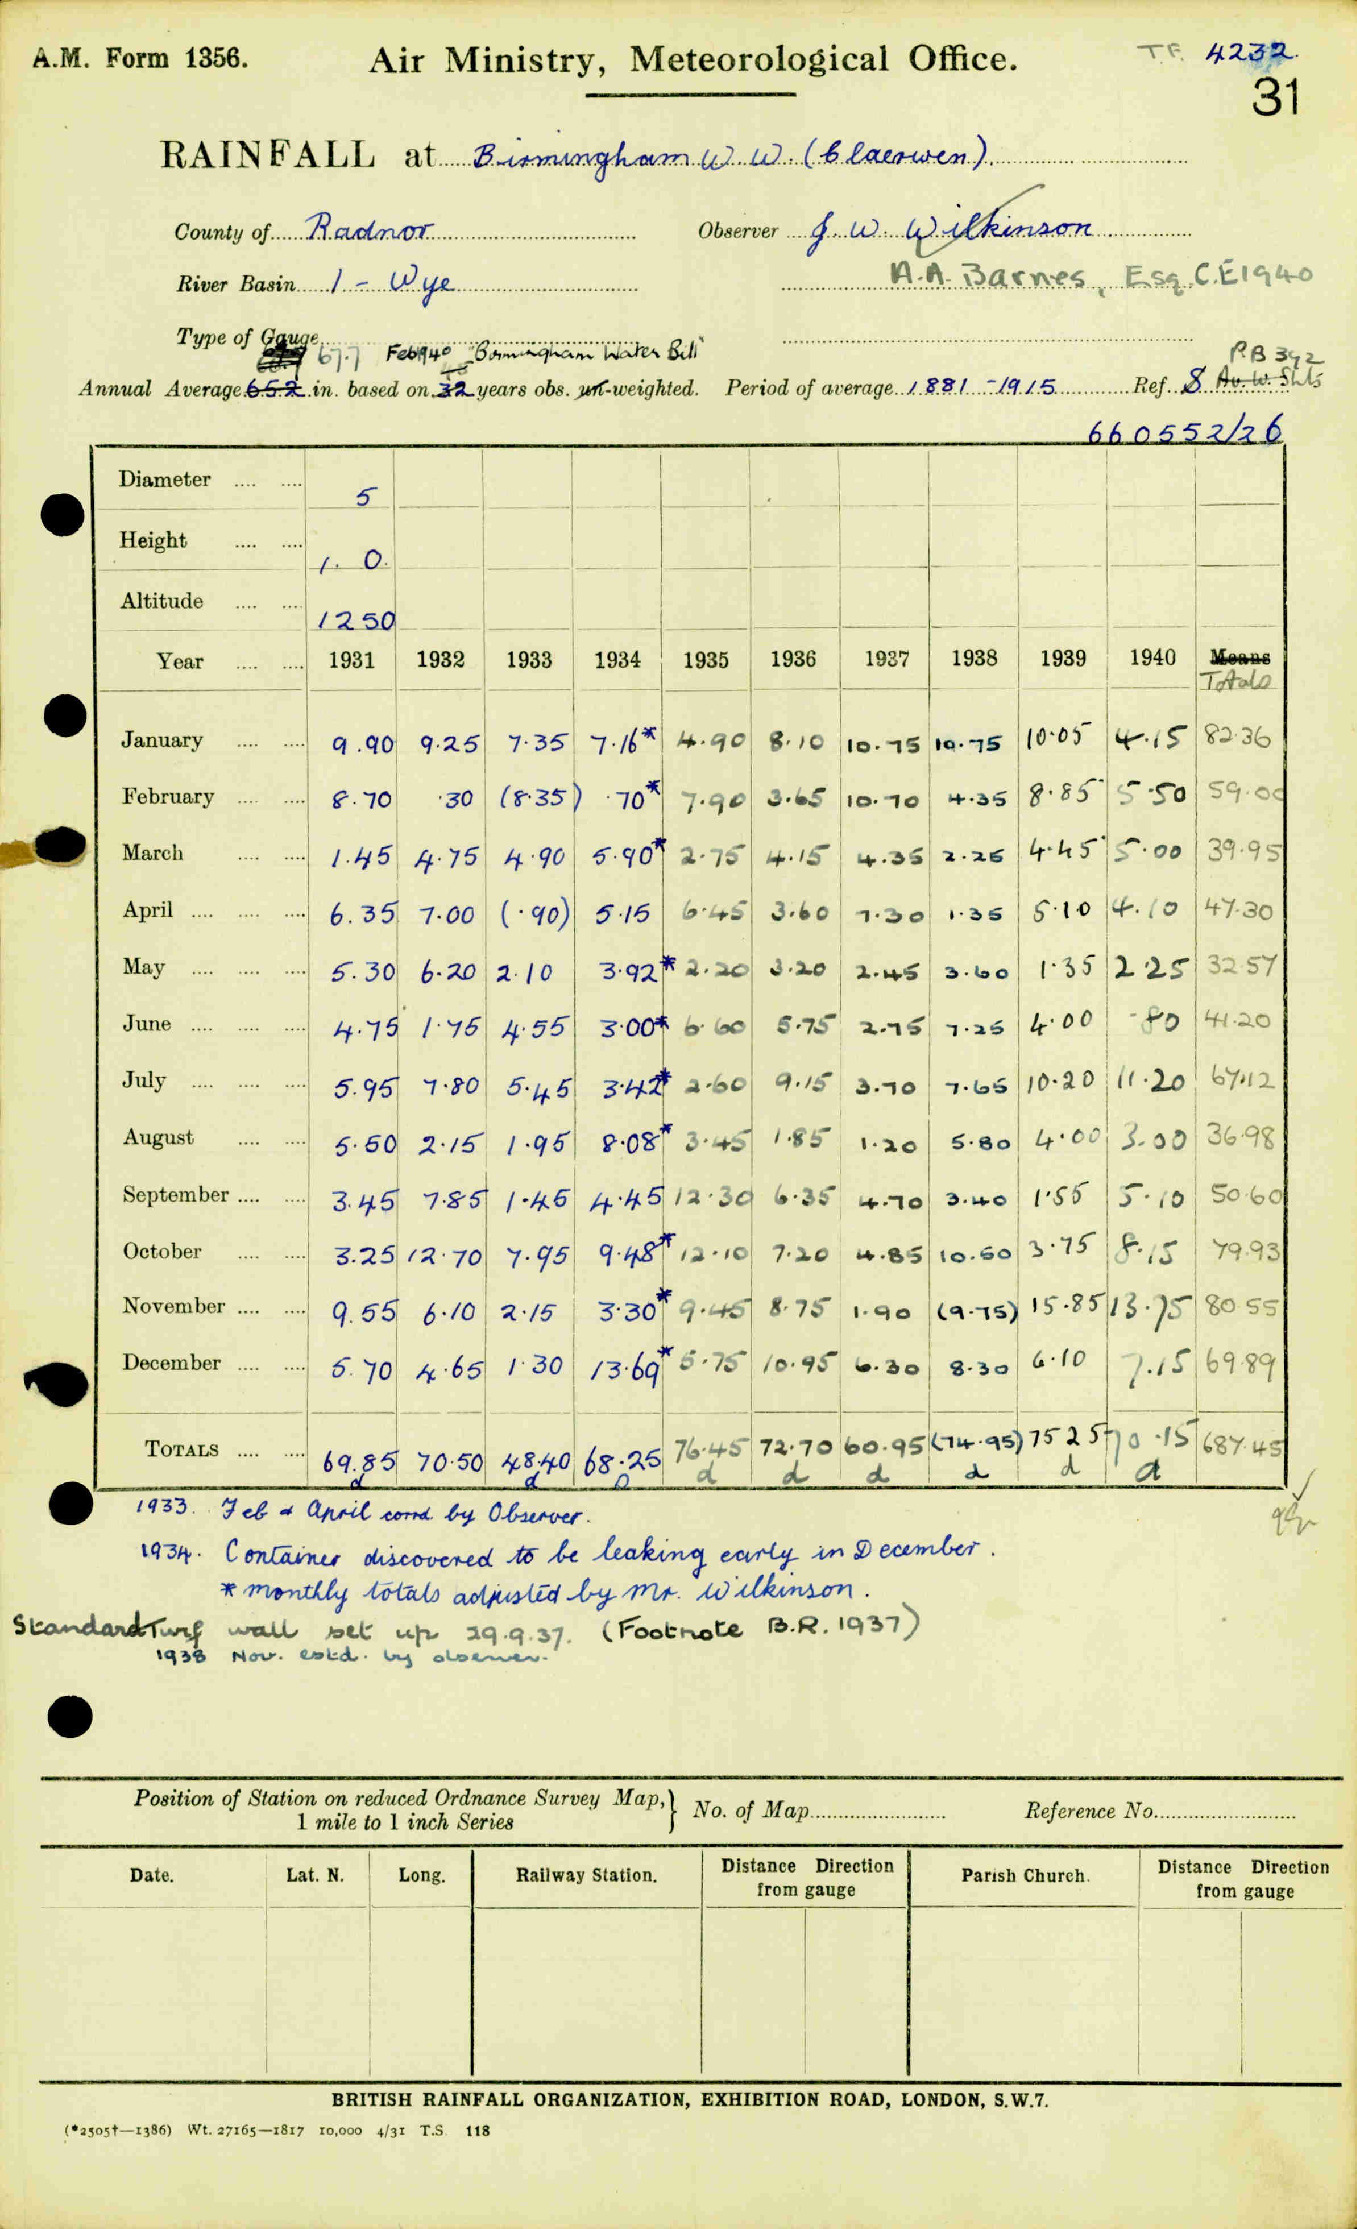 A.M. Form 1356.
Air Ministry, Meteorological Office.
T.F. 4232.
31
RAINFALL at Birmingham W. W. (Claerwen)
County of Radnor
Observer J. W. Wilkinson
River Basin 1 - Wye
A.A. Barnes, Esq. C.E 1940
Type of Gauge
67.7 Feb 1940 "Birmingham Water Bill"
P.B 392
Annual Average 65.2 in. based on 32 years obs. un-weighted. Period of average 1881 - 1915 Ref. S Av. W. Shts
660552/26
Diameter .... .... 5
Height .... .... 1. 0.
Altitude .... .... 1250
Year .... .... 1931 1932 1933 1934 1935 1936 1937 1938 1939 1940 Means
Totals
January .... .... 9.90 9.25 7.35 7.16* 4.90 8.10 10.75 10.75 10.05 4.15 82.36
February .... .... 8.70 .30 (8.35) .70* 7.90 3.65 10.70 4.35 8.85 5.50 59.00
March .... .... 1.45 4.75 4.90 5.90* 2.75 4.15 4.35 2.25 4.45 5.00 39.95
April .... .... .... 6.35 7.00 (.90) 5.15 6.45 3.60 7.30 1.35 5.10 4.10 47.30
May .... .... .... 5.30 6.20 2.10 3.92* 2.20 3.20 2.45 3.60 1.35 2.25 32.57
June .... .... .... 4.75 1.75 4.55 3.00* 6.60 5.75 2.75 7.25 4.00 .80 41.20
July .... .... .... 5.95 7.80 5.45 3.42* 2.60 9.15 3.70 7.65 10.20 11.20 67.12
August .... .... 5.50 2.15 1.95 8.08* 3.45 1.85 1.20 5.80 4.00 3.00 36.98
September .... .... 3.45 7.85 1.45 4.45 12.30 6.35 4.70 3.40 1.55 5.10 50.60
October .... .... 3.25 12.70 7.95 9.48* 12.10 7.20 4.85 10.50 3.75 8.15 79.93
November .... .... 9.55 6.10 2.15 3.30* 9.45 8.75 1.90 (9.75) 15.85 13.75 80.55
December .... .... 5.70 4.65 1.30 13.69* 5.75 10.95 6.30 8.30 6.10 7.15 69.89
TOTALS .... .... 69.85 70.50 48.40 68.25 76.45 72.70 60.95 (74.95) 75 25 70.15 687.45
d d D d d d d d d
1933. Feb & April corrd by Observer.
1934. Container discovered to be leaking early in December.
* monthly totals adjusted by Mr. Wilkinson.
Standard Turf wall set up 29.9.37. (Footnote B.R. 1937)
1938 Nov. estd. by observer.
Position of Station on reduced Ordnance Survey Map,
1 mile to 1 inch Series
No. of Map
Reference No.
Date. Lat. N. Long. Railway Station. Distance Direction from gauge Parish Church. Distance Direction from gauge
BRITISH RAINFALL ORGANIZATION, EXHIBITION ROAD, LONDON, S.W.7.
(*2505†—1386) Wt. 27165—1817 10,000 4/31 T.S. 118